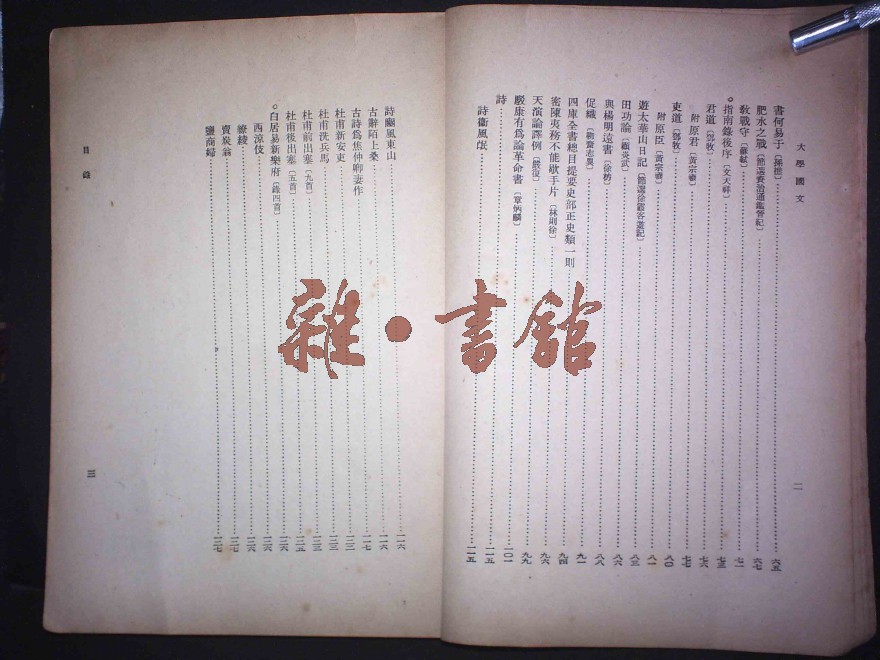 大學國文
二
書何易于〔孫樵〕 六五
肥水之戰〔節選資治通鑑晉紀〕 六七
敎戰守〔蘇軾〕 七一
指南錄後序〔文天祥〕 七三
君道〔鄧牧〕 七六
附 原君〔黃宗羲〕 七七
吏道〔鄧牧〕 八〇
附 原臣〔黃宗羲〕 八一
遊太華山日記〔節選徐霞客遊記〕 八三
田功論〔顧炎武〕 八六
與楊明遠書〔徐枋〕 八八
促織〔聊齋志異〕 九一
四庫全書總目提要史部正史類一則 九四
密陳夷務不能歇手片〔林則徐〕 九六
天演論譯例〔嚴復〕 九九
駁康有爲論革命書〔章炳麟〕 一〇一
詩 一一五
詩衞風氓 一一五
詩豳風東山 一一六
古辭陌上桑 一一六
古詩爲焦仲卿妻作 一一七
杜甫新安吏 一二三
杜甫洗兵馬 一二三
杜甫前出塞〔九首〕 一二三
杜甫後出塞〔五首〕 一二五
白居易新樂府〔錄四首〕 一二六
西涼伎 一二六
繚綾 一二六
賣炭翁 一二七
鹽商婦 一二七
目錄
三
雜·書館